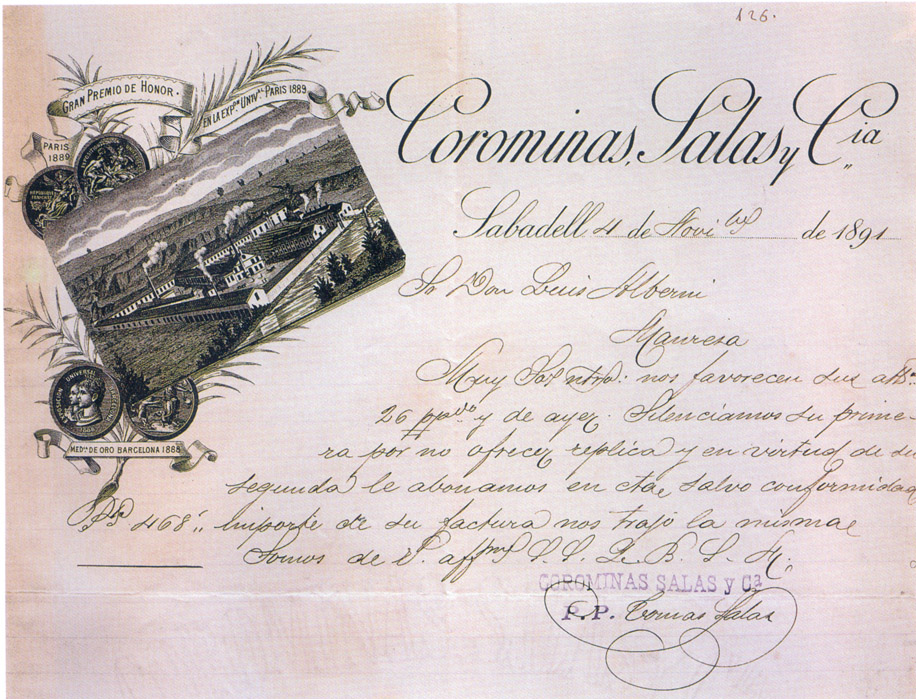 126.
GRAN PREMIO DE HONOR.
EN LA EXPON UNIVAL PARIS 1889
PARIS
1889
Corominas, Salas y Cia
Sabadell 4 de Novibre de 1891
Sr Don Luis Alberni
Manresa
Muy Sor ntro: nos favorecen sus atts.
26 ppdo y de ayer. Silenciamos su prime-
ra por no ofrecer replica y en virtud de su
segunda le abonamos en cta, salvo conformidad
Pts 468" importe de su factura nos trajo la misma
Somos de V. affmos S. S. Q. B. S. M.
EXPOSICION UNIVERSAL
MEDLLA DE ORO BARCELONA 1888
COROMINAS SALAS y Ca
P.P. Tomas Salas